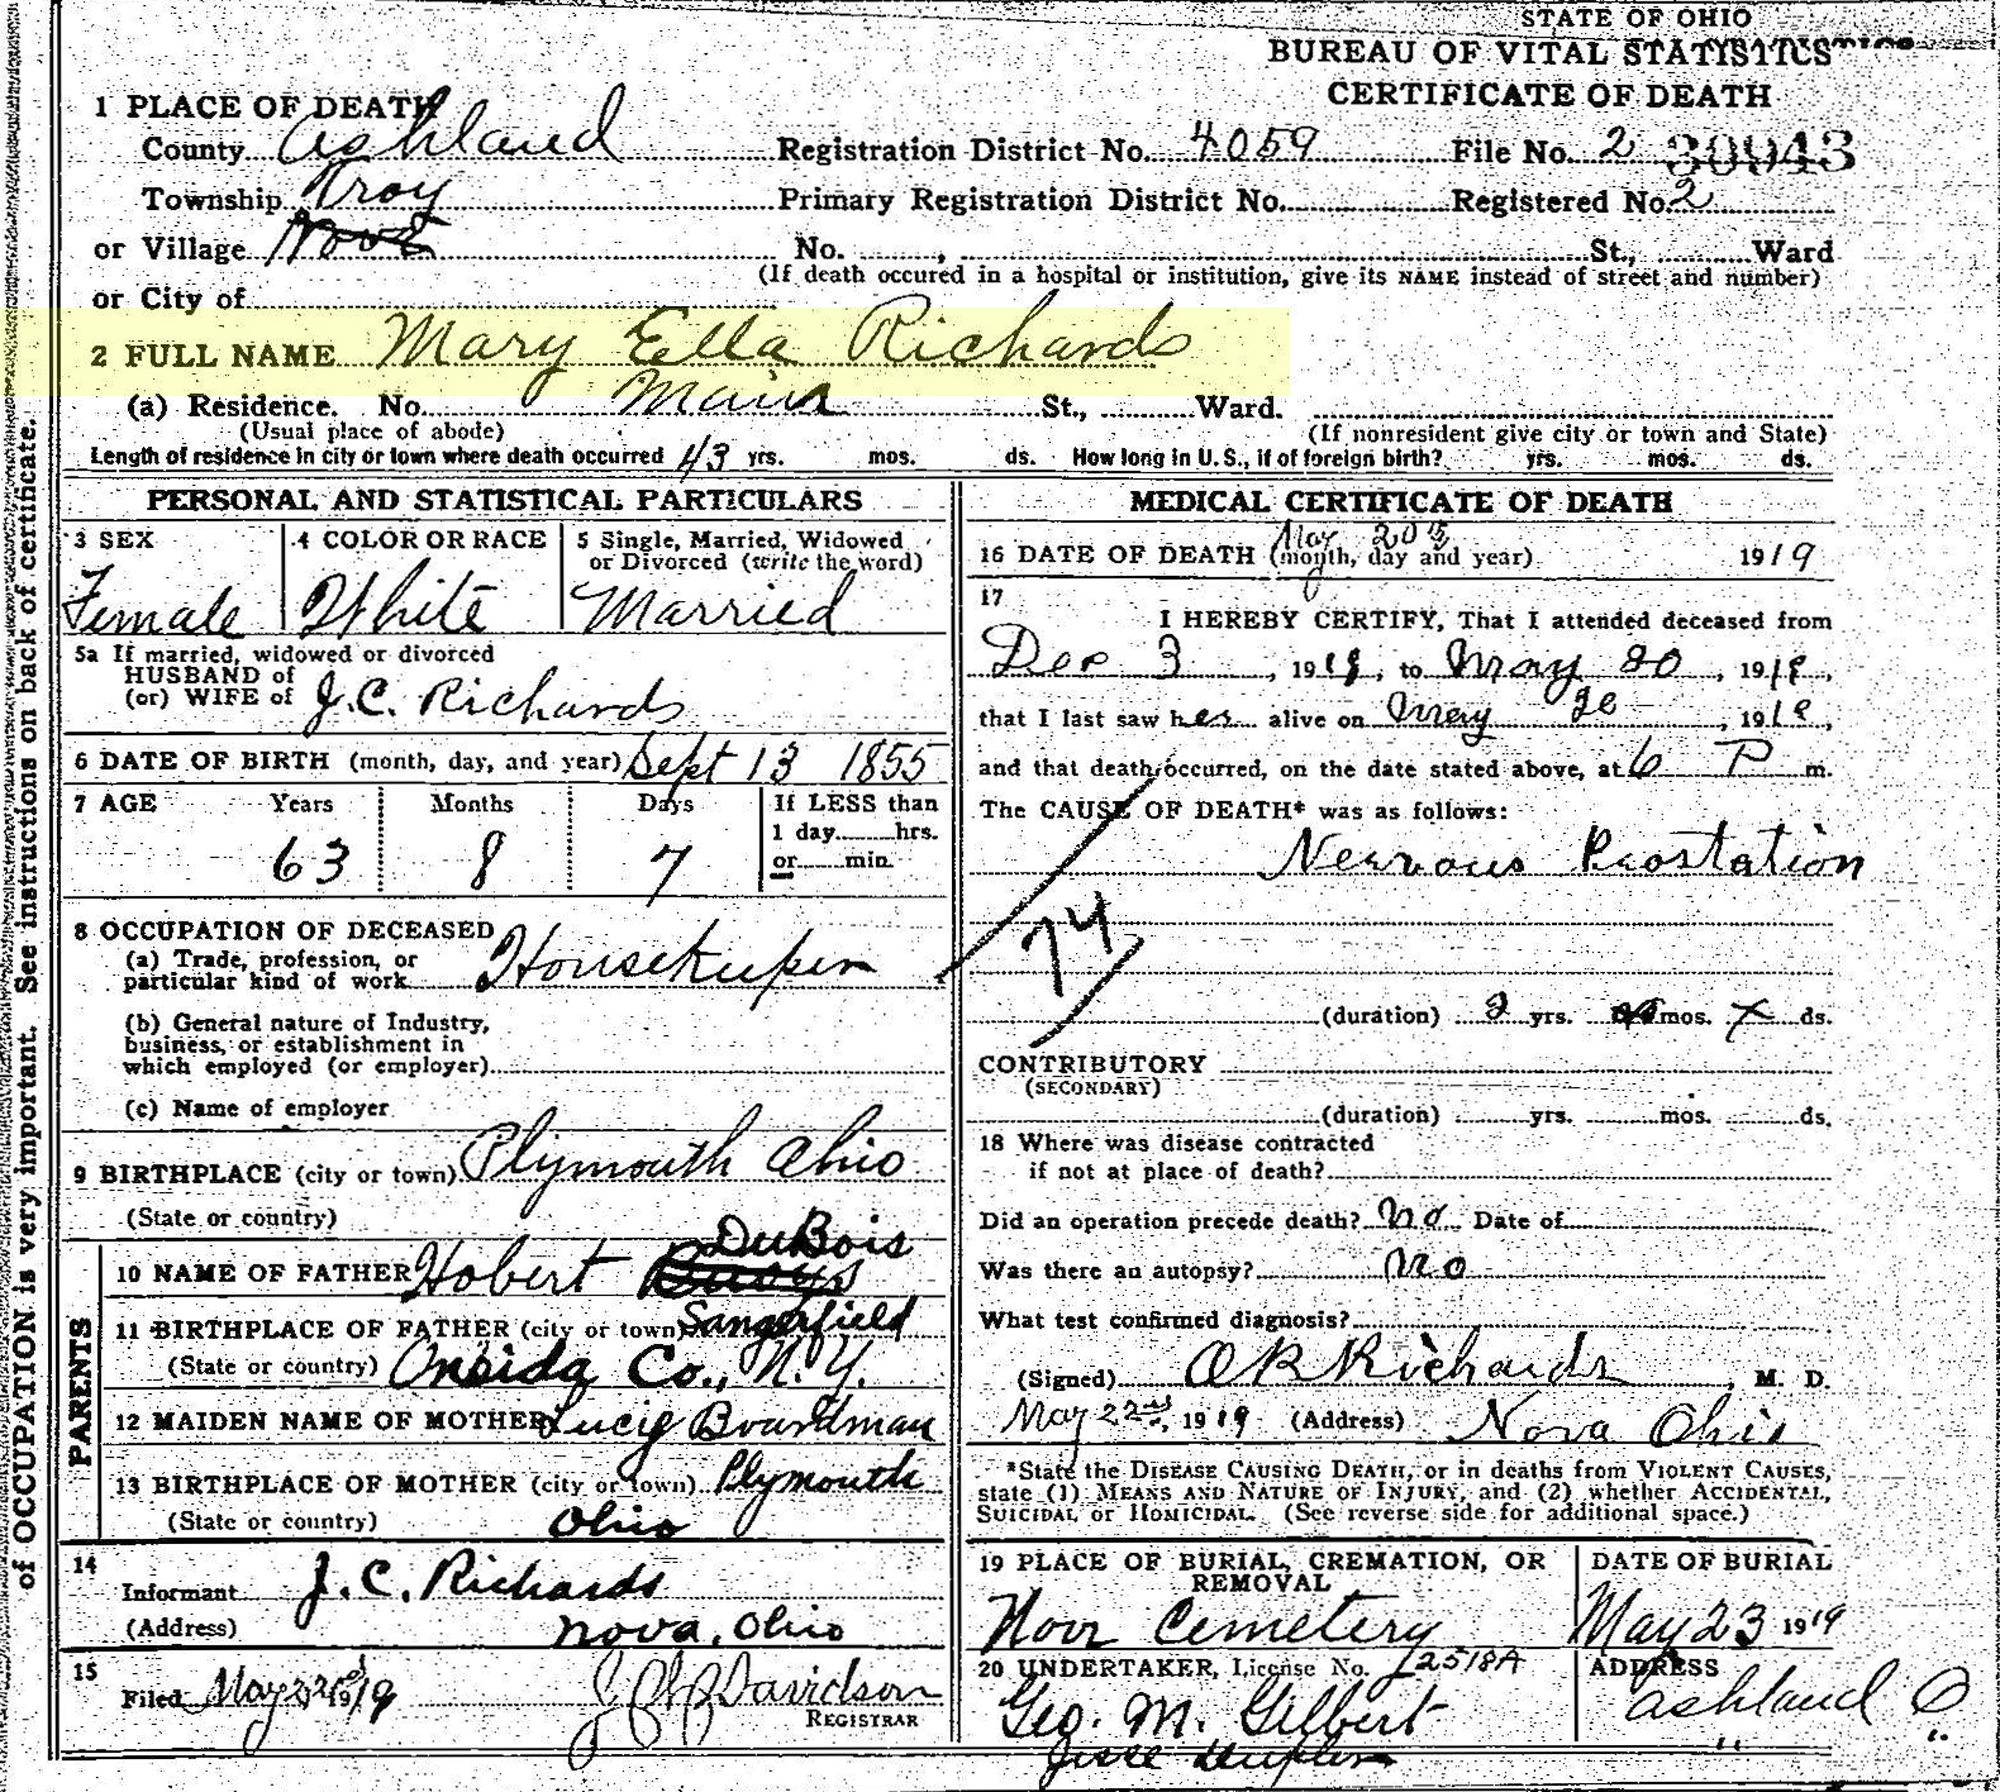 STATE OF OHIO
BUREAU OF VITAL STATISTICS
CERTIFICATE OF DEATH
1 PLACE OF DEATH
County Ashland Registration District No. 4059 File No. 2 30943
Township Troy Primary Registration District No. Registered No. 2
or Village No. , St., Ward
(If death occured in a hospital or institution, give its NAME instead of street and number)
or City of
2 FULL NAME Mary Ella Richards
(a) Residence. No. Main St., Ward.
(Usual place of abode) (If nonresident give city or town and State)
Length of residence in city or town where death occurred 43 yrs. mos. ds. How long in U. S., if of foreign birth? yrs. mos. ds.
PERSONAL AND STATISTICAL PARTICULARS
3 SEX
Female
4 COLOR OR RACE
White
5 Single, Married, Widowed
or Divorced (write the word)
Married
5a If married, widowed or divorced
HUSBAND of
(or) WIFE of J.C. Richards
6 DATE OF BIRTH (month, day, and year) Sept 13 1855
7 AGE Years Months Days If LESS than
1 day hrs.
63 8 7 or min.
8 OCCUPATION OF DECEASED
(a) Trade, profession, or
particular kind of work Housekeeper
(b) General nature of Industry,
business, or establishment in
which employed (or employer)
(c) Name of employer
9 BIRTHPLACE (city or town) Plymouth Ohio
(State or country)
PARENTS
DuBois
10 NAME OF FATHER Hobert
11 BIRTHPLACE OF FATHER (city or town) Sangerfield
(State or country) Oneida Co., N.Y.
12 MAIDEN NAME OF MOTHER Lucy Boardman
13 BIRTHPLACE OF MOTHER (city or town) Plymouth
(State or country) Ohio
14
Informant J.C. Richards
(Address) Nova, Ohio
15
Filed May 22 1919 Davidson
REGISTRAR
MEDICAL CERTIFICATE OF DEATH
16 DATE OF DEATH (month, day and year) May 20 1919
17
I HEREBY CERTIFY, That I attended deceased from
Dec 3, 1918, to May 20, 1919,
that I last saw her alive on May 20, 1919,
and that death occurred, on the date stated above, at 6 P m.
The CAUSE OF DEATH* was as follows:
Nervous Prostation
74
(duration) yrs. mos. ds.
CONTRIBUTORY
(SECONDARY)
(duration) yrs. mos. ds.
18 Where was disease contracted
if not at place of death?
Did an operation precede death? no Date of
Was there an autopsy? no
What test confirmed diagnosis?
(Signed) O R Richards, M. D.
May 22nd, 1919 (Address) Nova Ohio
*State the DISEASE CAUSING DEATH, or in deaths from VIOLENT CAUSES,
state (1) MEANS AND NATURE OF INJURY, and (2) whether ACCIDENTAL,
SUICIDAL or HOMICIDAL. (See reverse side for additional space.)
19 PLACE OF BURIAL, CREMATION, OR
REMOVAL
Cemetery
DATE OF BURIAL
May 23 1919
20 UNDERTAKER, License No. 2518A
Geo. M. Gilbert
ADDRESS
Ashland O
of OCCUPATION is very important. See instructions on back of certificate.